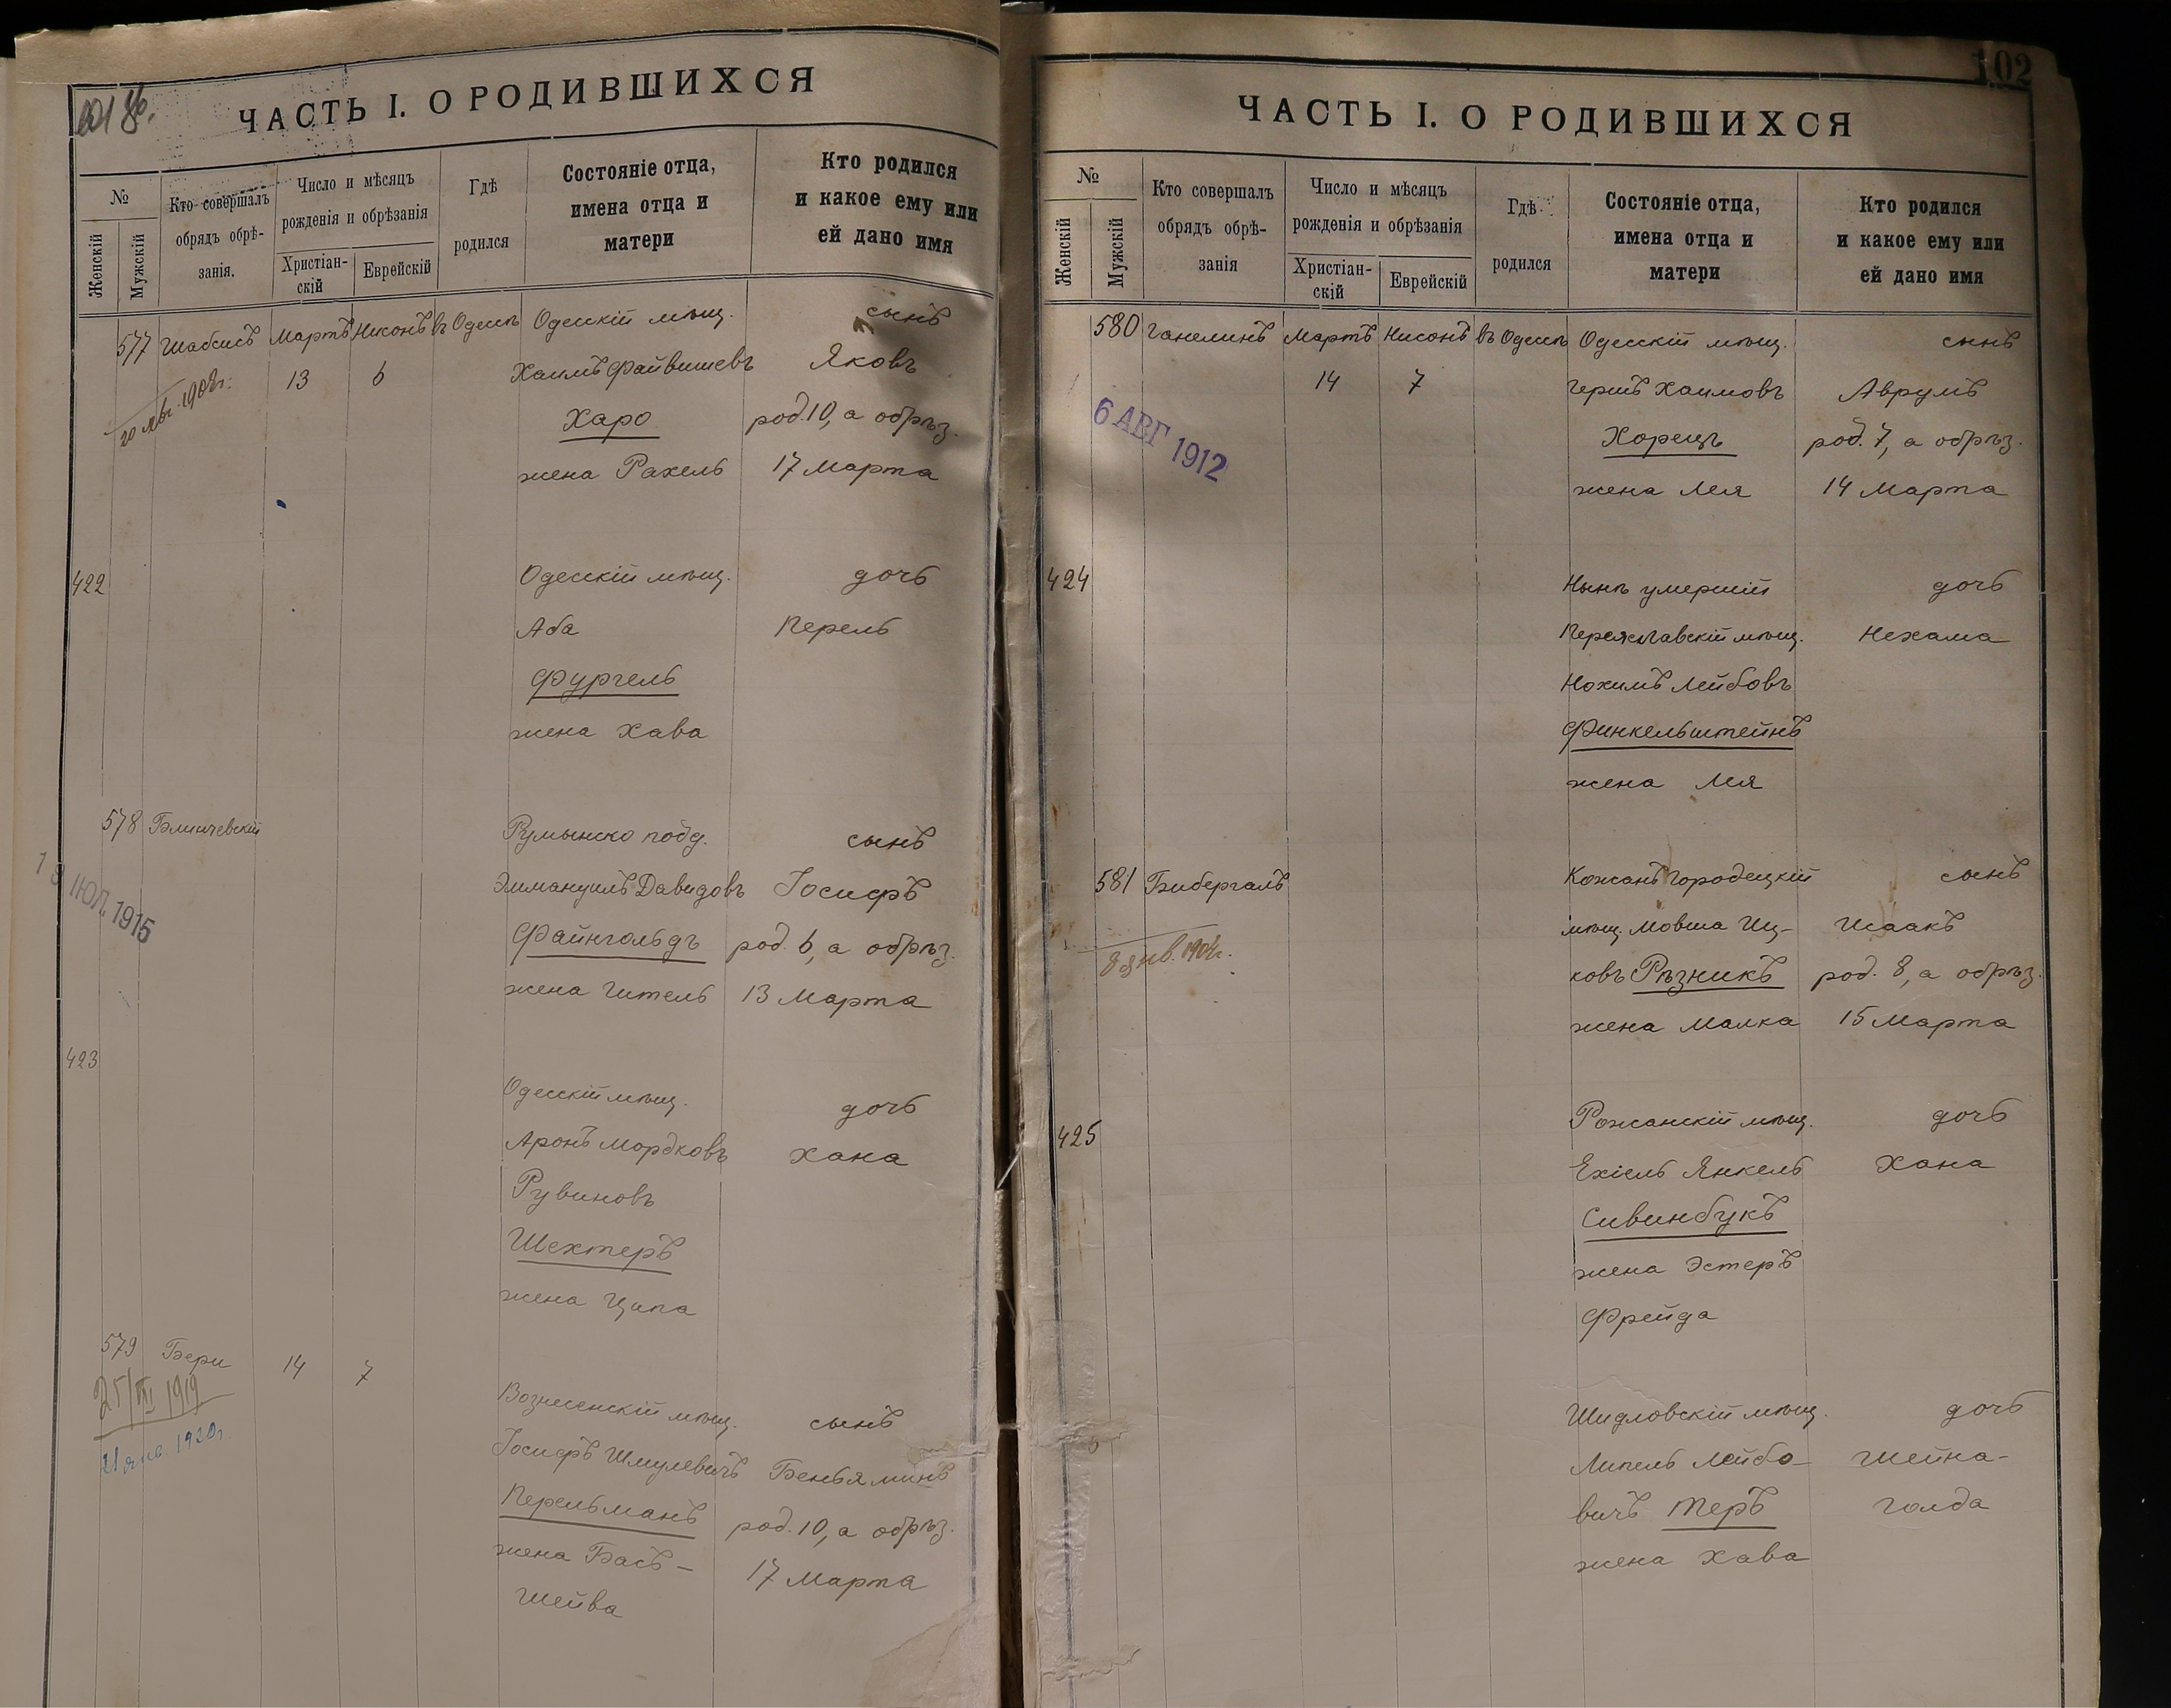 ЧАСТЬ I. О РОДИВШИХСЯ
№
Женскій
Мужскій
Кто совершалъ
обрядъ обрѣ-
занія.
Число и мѣсяцъ
рожденія и обрѣзанія
Христіан-
скій
Еврейскій
Гдѣ
родился
Состояніе отца,
имена отца и
матери
Кто родился
и какое ему или
ей дано имя
577 Шабсисъ Мартъ Нисонъ въ Одессѣ Одесскій мѣщ. сынъ
13 6 Хаимъ Файвишевъ Яковъ
Харо род. 10, а обрѣз.
жена Рахель 17 Марта
422 Одесскій мѣщ. дочь
Аба Перель
Фургель
жена Хава
578 Блинчевскій Румынско подд. сынъ
Эммануилъ Давидовъ Іосифъ
19 ІЮЛ 1915
Файнгольдъ род. 6, а обрѣз.
жена Гитель 13 Марта
423 Одесскій мѣщ. дочь
Аронъ Мордковъ Хана
Рувиновъ
Шехтеръ
жена Ципа
579 Бери 14 7
25/III 1919
21 янв. 1920 г.
Вознесенскій мѣщ. сынъ
Іосифъ Шмулевичъ Беньяминъ
Перельманъ род. 10, а обрѣз.
жена Бась- 17 Марта
Шейва
102
ЧАСТЬ I. О РОДИВШИХСЯ
№
Женскій
Мужскій
Кто совершалъ
обрядъ обрѣ-
занія
Число и мѣсяцъ
рожденія и обрѣзанія
Христіан-
скій
Еврейскій
Гдѣ
родился
Состояніе отца,
имена отца и
матери
Кто родился
и какое ему или
ей дано имя
580 Ганелинъ Мартъ Нисонъ въ Одессѣ Одесскій мѣщ. сынъ
14 7 Гершъ Хаимовъ Аврумъ
6 АВГ 1912
Хорецъ род. 7, а обрѣз.
жена Лея 14 Марта
424 Нынѣ умершій дочь
Переяславскій мѣщ. Нехама
Нохимъ Лейбовъ
Финкельштейнъ
жена Лея
581 Бибергалъ Кожанъ Городецкій сынъ
мѣщ. Мовша Иц- Исаакъ
8 янв. 1904 г.
ковъ Рѣзникъ род. 8, а обрѣз.
жена Малка 15 Марта
425 Рожанскій мѣщ. дочь
Ехіель Янкель Хана
Сивинбукъ
жена Эстеръ
Фрейда
Шидловскій мѣщ. дочь
Липель Лейбо- Шейна-
вичъ Теръ Голда
жена Хава